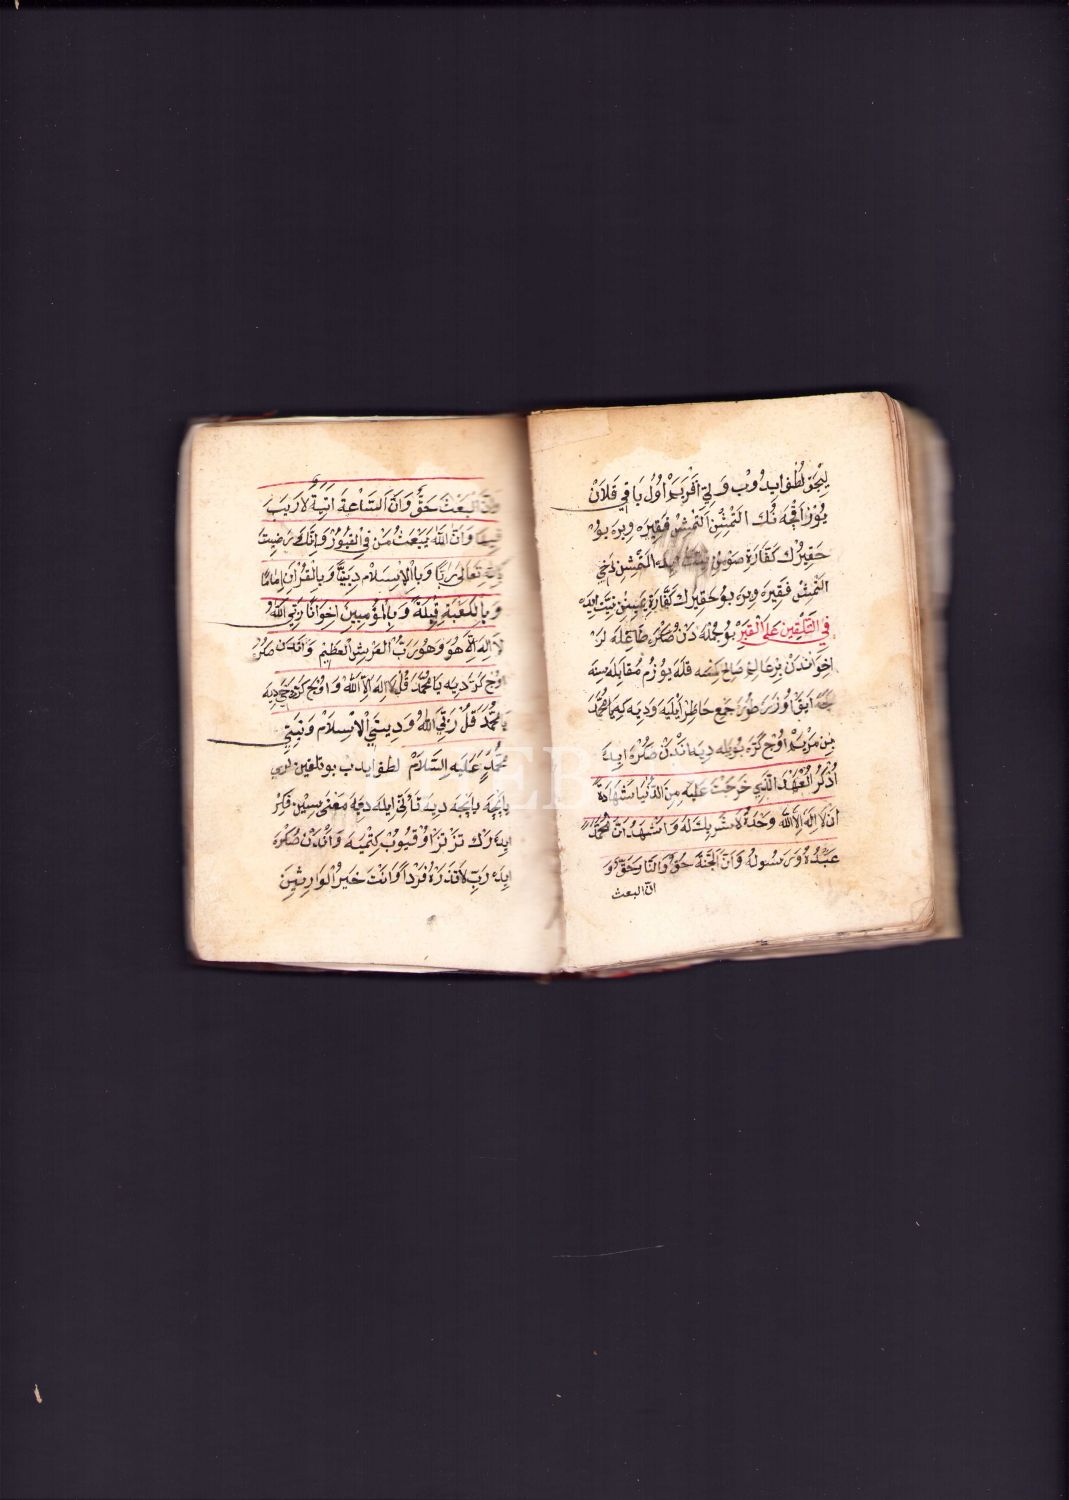 لِيجَق لُطْف ايدُوبْ وَلِيّ اَقْرَبَمْ اُولُ بَاقِي فَلَانْ
يُوزْ اَقْچَه نُكْ اَلتْمِشِن اَلتْمِشْ فَقِيرَه وِيرَه بُو
حَقِيرُكْ كَفَّارَةِ صَوْمِنْ اَلتْمِشِن دَخِي
اَلتْمِشْ فَقِيرَه وِيرَه بُو حَقِيرُكْ كَفَّارَةِ يَمِينِنْ نِيَّت ايدَه
فِي التَّلْقِينِ عَلَى الْقَبْرِ بُو جُمْلَه دَنْ صُكْرَه
اِخْوَانْدَنْ بِرْ عَالِم صَالِح كِمْسَه قَبْلَه يُوزُم مُقَابَلَه سِنَه
اَيَاقْ اُوزَرَه طُورَه جَمْعِ خَاطِرْ اَيْلَيَه وَدِيَه كِه يَا مُحَمَّدُ
بِنْ مَرْيَمْ اُوچْ كَرَه بُويْلَه دِيَه اَنْدَنْ صُكْرَه ايدَه
اُذْكُرِ الْعَهْدَ الَّذِي خَرَجْتَ عَلَيْهِ مِنَ الدُّنْيَا شَهَادَةً
اَنْ لَا اِلٰهَ اِلَّا اللّٰهُ وَحْدَهُ لَا شَرِيكَ لَهُ وَاَشْهَدُ اَنَّ مُحَمَّدًا
عَبْدُهُ وَرَسُولُهُ وَاَنَّ الْجَنَّةَ حَقٌّ وَالنَّارَ حَقٌّ وَ
انّ البعث
وَاَنَّ الْبَعْثَ حَقٌّ وَاَنَّ السَّاعَةَ اٰتِيَةٌ لَا رَيْبَ
فِيهَا وَاَنَّ اللّٰهَ يَبْعَثُ مَنْ فِي الْقُبُورِ وَاِنَّكَ رَضِيتَ
بِاللّٰهِ تَعَالٰى رَبًّا وَبِالْاِسْلَامِ دِينًا وَبِالْقُرْاٰنِ اِمَامًا
وَبِالْكَعْبَةِ قِبْلَةً وَبِالْمُؤْمِنِينَ اِخْوَانًا رَبِّيَ اللّٰهُ
لَا اِلٰهَ اِلَّا هُوَ وَهُوَ رَبُّ الْعَرْشِ الْعَظِيمِ وَاَنْدَنْ صُكْرَه
اُوچْ كَرَّه دِيَه يَا مُحَمَّدُ قُلْ لَا اِلٰهَ اِلَّا اللّٰهُ وَاُوچْ كَرَّه دَخِي دِيَه
يَا مُحَمَّدُ قُلْ رَبِّيَ اللّٰهُ وَدِينِيَ الْاِسْلَامُ وَنَبِيِّي
مُحَمَّدٌ عَلَيْهِ السَّلَامْ لُطْف ايدُبْ بُو تَلْقِينْلَرِي
يَانْچَه يَانْچَه دِيَه تَأَنِّي ايلَه دِيَه مَعْنَى سِينْ فِكْر
ايدَرَكْ تَزْ تَزْ اُوقُيُوبْ كِتْمَيَه وَاَنْدَنْ صُكْرَه
ايدَه رَبِّ لَا تَذَرْنِي فَرْدًا وَاَنْتَ خَيْرُ الْوَارِثِينَ